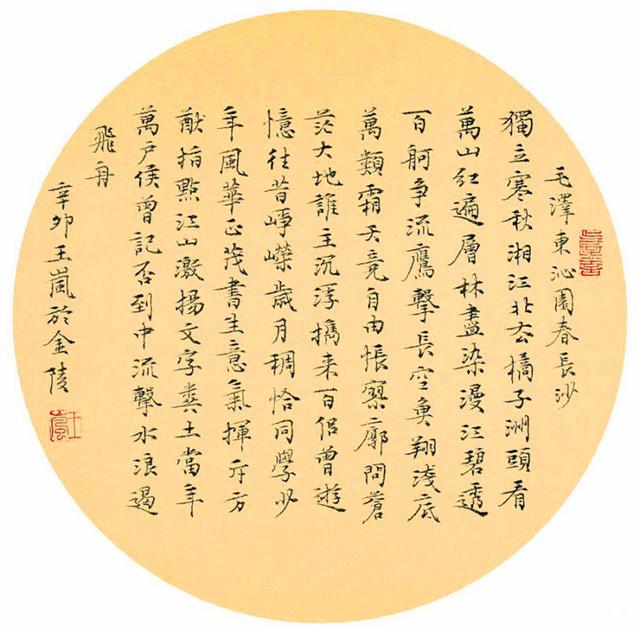 毛澤東沁園春長沙
獨立寒秋湘江北去橘子洲頭看
萬山紅遍層林盡染漫江碧透
百舸爭流鷹擊長空魚翔淺底
萬類霜天竞自由悵寥廓問蒼
茫大地誰主沉浮攜來百侶曾遊
憶往昔崢嶸歲月稠恰同學少
年風華正茂書生意氣揮斥方
猷指點江山激揚文字糞土當年
萬户侯曾記否到中流擊水浪遏
飛舟
辛卯王嵐於金陵
王嵐